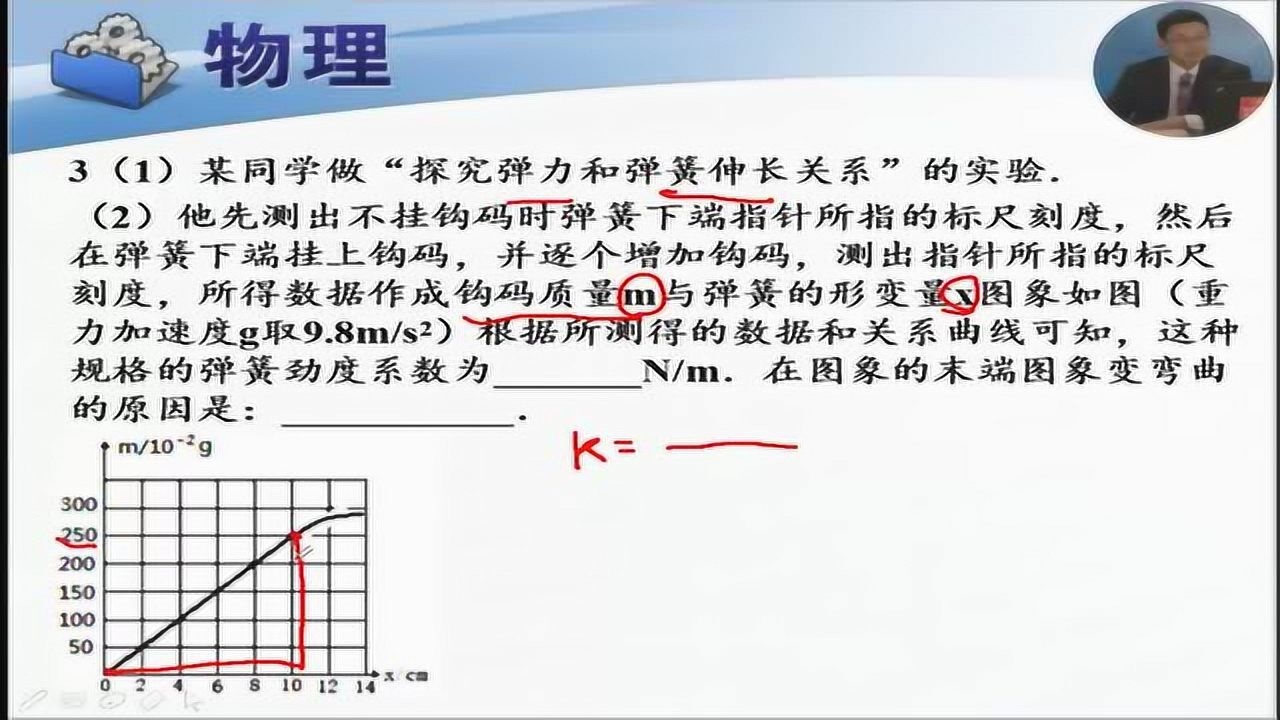 物理
3（1）某同学做“探究弹力和弹簧伸长关系”的实验.
（2）他先测出不挂钩码时弹簧下端指针所指的标尺刻度，然后
在弹簧下端挂上钩码，并逐个增加钩码，测出指针所指的标尺
刻度，所得数据作成钩码质量m与弹簧的形变量x图象如图（重
力加速度g取9.8m/s²）根据所测得的数据和关系曲线可知，这种
规格的弹簧劲度系数为_______N/m．在图象的末端图象变弯曲
的原因是：___________．
K=
m/10⁻²g
300
250
200
150
100
50
0 2 4 6 8 10 12 14 x/cm